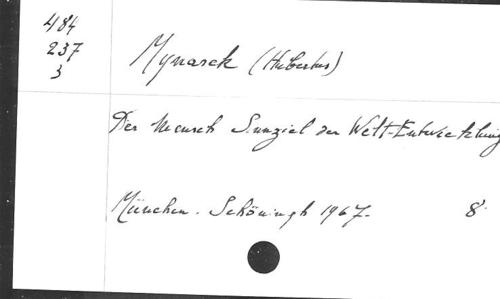 484
237
3
Mynarek (Hubertus)
Der Mensch Sinnziel der Welt-Entwicklung
München. Schöningh 1967. 8°